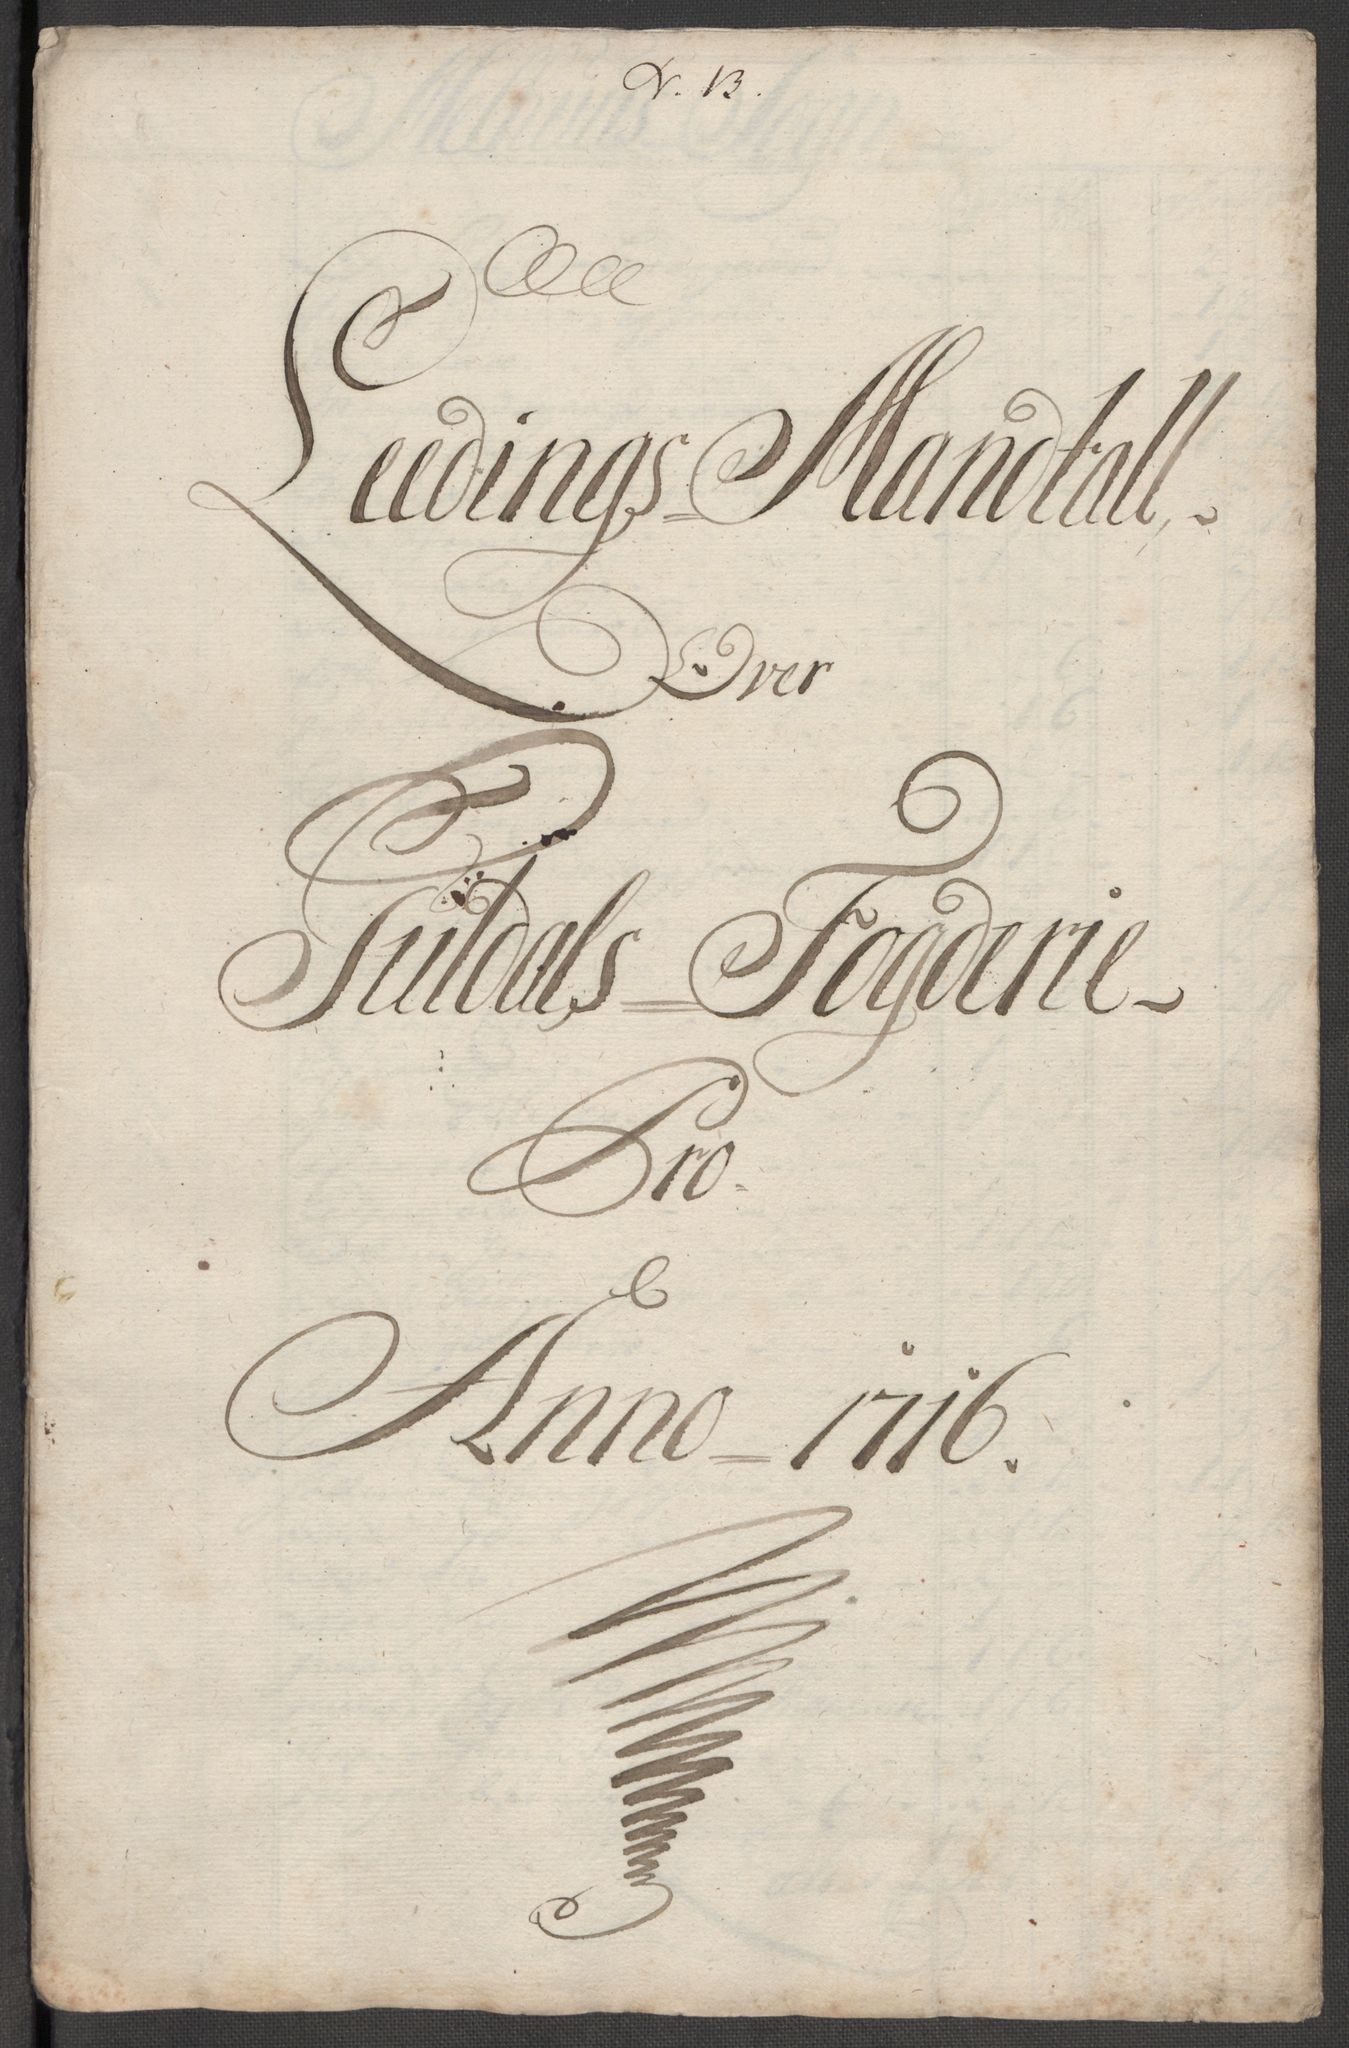 N. 13.
Leedings=Mandtall,
Over
Fuldals=Fogderie
Pro
Anno=1716.